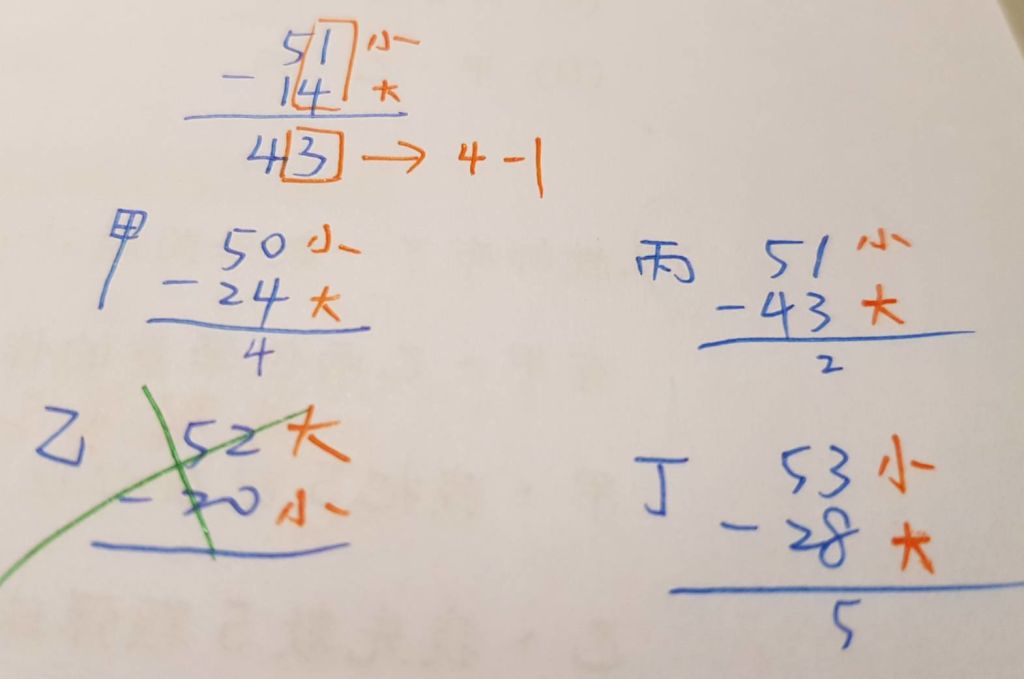 51 小
- 14 大
43 → 4-1
甲 50 小
- 24 大
4
丙 51 小
- 43 大
2
乙 52 大
- 20 小
丁 53 小
- 28 大
5